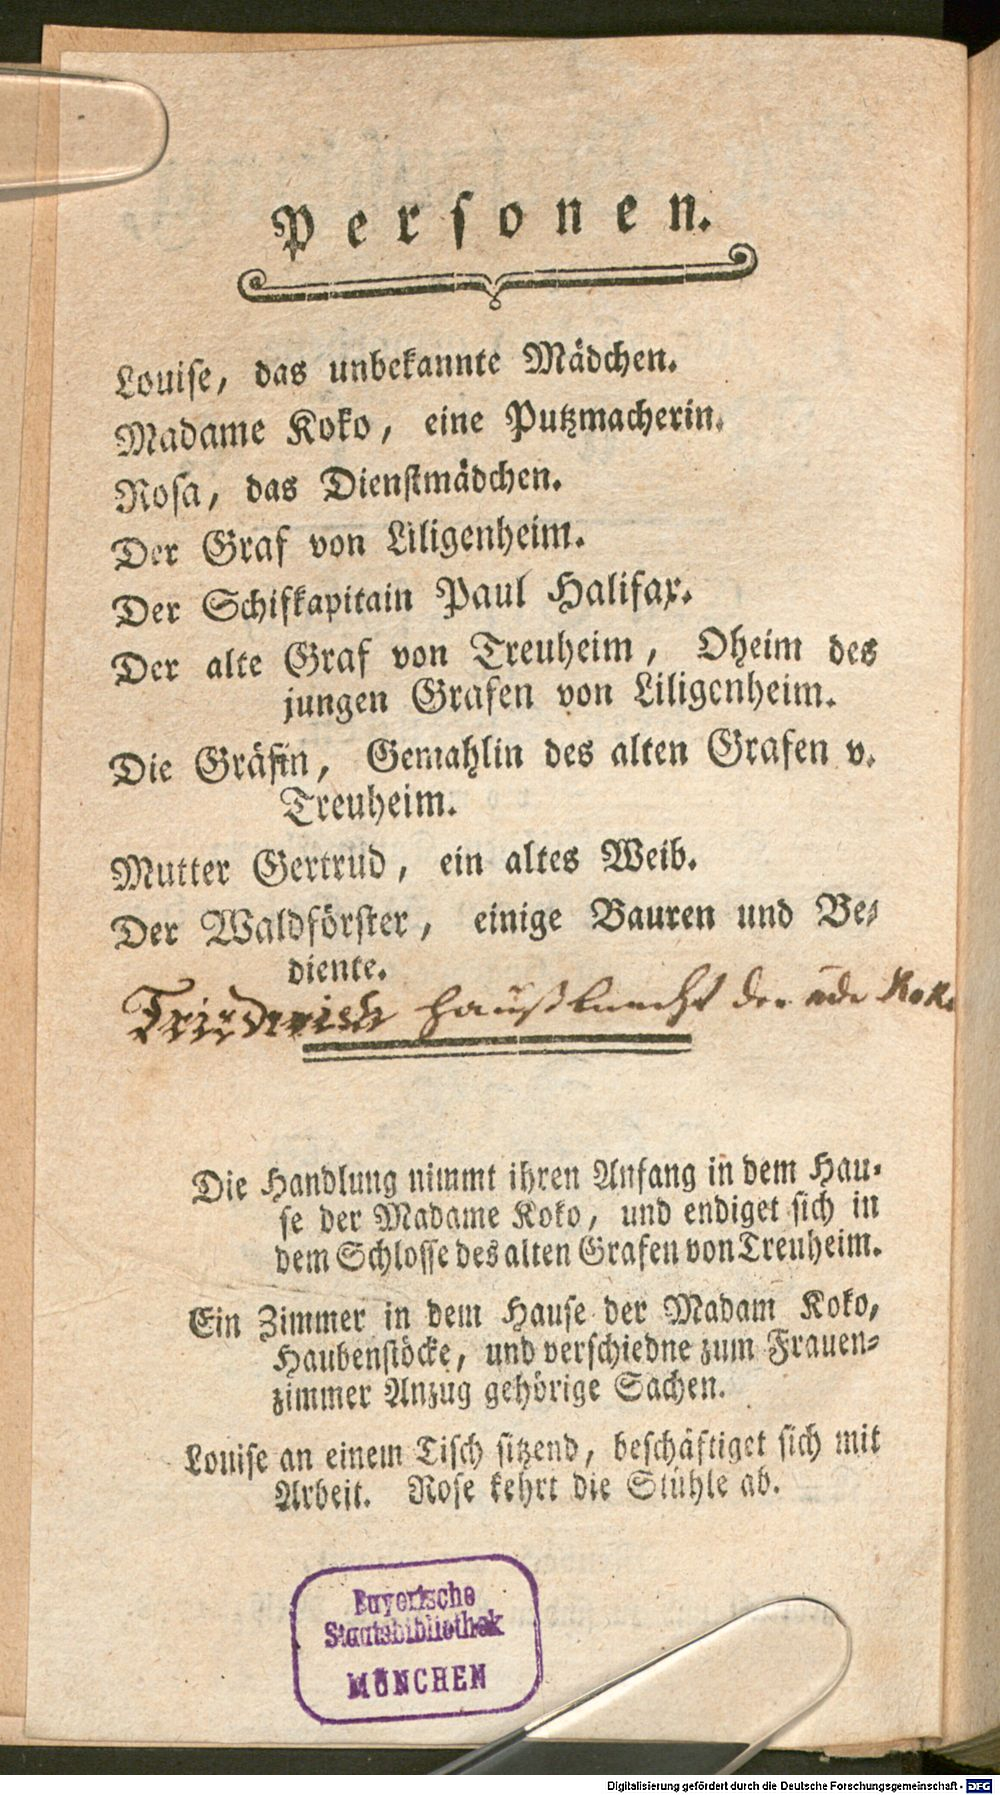 Personen.
Louiſe, das unbekannte Mädchen.
Madame Koko, eine Putzmacherin.
Roſa, das Dienſtmädchen.
Der Graf von Liligenheim.
Der Schifkapitain Paul Halifax.
Der alte Graf von Treuheim, Oheim des
jungen Grafen von Liligenheim.
Die Gräfin, Gemahlin des alten Grafen v.
Treuheim.
Mutter Gertrud, ein altes Weib.
Der Waldförſter, einige Bauren und Be⸗
diente.
Friederich Haußknecht der Koko
Die Handlung nimmt ihren Anfang in dem Hau⸗
ſe der Madame Koko, und endiget ſich in
dem Schloſſe des alten Grafen von Treuheim.
Ein Zimmer in dem Hauſe der Madam Koko,
Haubenſtöcke, und verſchiedne zum Frauen⸗
zimmer Anzug gehörige Sachen.
Louiſe an einem Tiſch ſitzend, beſchäftiget ſich mit
Arbeit. Roſe kehrt die Stühle ab.
Bayerische
Staatsbibliothek
MÜNCHEN
Digitalisierung gefördert durch die Deutsche Forschungsgemeinschaft - DFG